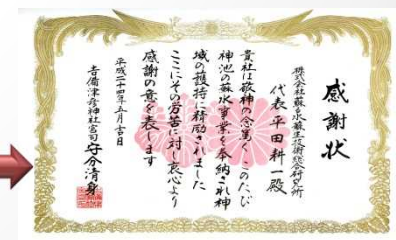 感謝状
株式会社蘇生水蘇生技術総合研究所
代表 平田耕一殿
貴社は敬神の念篤くこのたび
神池の蘇水事業を奉納され神
域の護持に精励されました
ここにその労苦に対し衷心より
感謝の意を表します
平成二十四年五月吉日
吉備津彦神社宮司守分清身